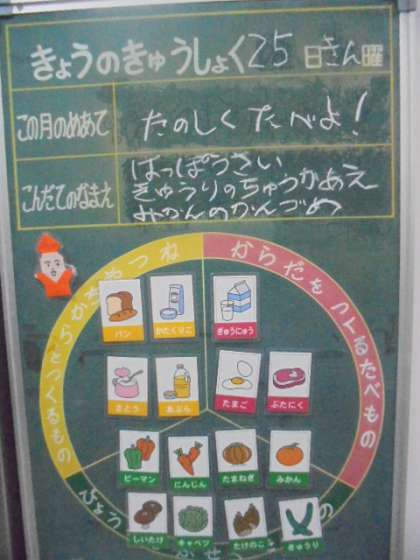 きょうのきゅうしょく25日きん曜
この月のめあて
たのしくたべよ!
こんだてのなまえ
はっぽうさい
きゅうりのちゅうかあえ
みかんのかんづめ
からだをつくるたべもの
パン
かたくりこ
ぎゅうにゅう
さとう
あぶら
たまご
ぶたにく
ピーマン
にんじん
たまねぎ
みかん
しいたけ
キャベツ
たけのこ
きゅうり